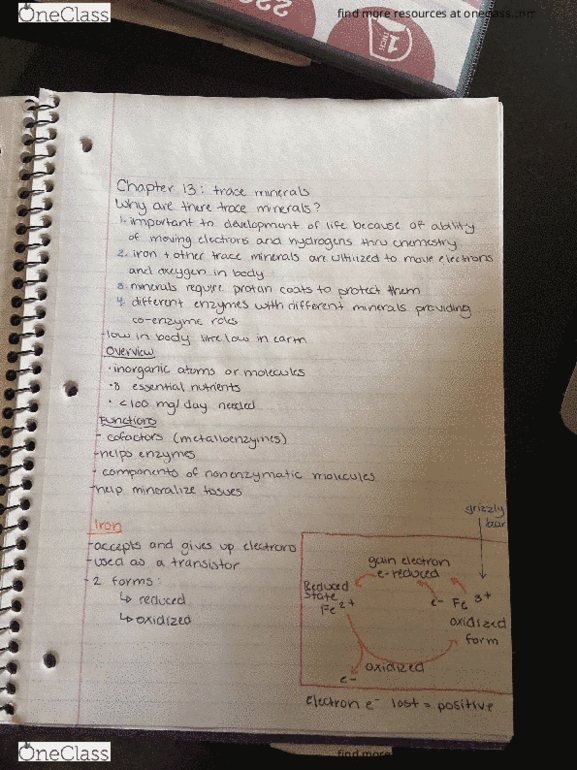 OneClass
find more resources at oneclass.com
Chapter 13: trace minerals
Why are there trace minerals?
1. important to development of life because of ability
of moving electrons and hydrogens thru chemistry
2. iron + other trace minerals are ultilized to move electrons
and oxygen in body
3. minerals require protan coats to protect them
4. different enzymes with different minerals providing
co-enzyme roles
-low in body like low in earth
Overview
•inorganic atoms or molecules
•8 essential nutrients
• <100 mg/day needed
Functions
- cofactors (metalloenzymes)
-helps enzymes
- components of nonenzymatic molecules
-help mineralize tissues
Iron
-accepts and gives up electrons
-used as a transistor
- 2 forms:
↳ reduced
↳ oxidized
grizzly
bear
gain electron
e- reduced
Reduced
State
Fe2+
e- Fe 3+
oxidized
form
oxidized
e-
electron e- lost = positive
OneClass
find more